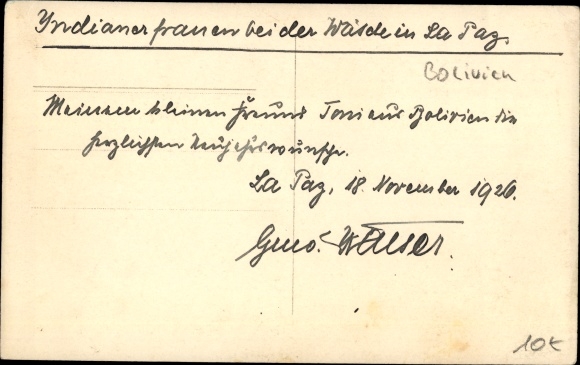 Yndianerfrauen bei der Wäsde in La Paz.
Bolivien
Meinem kleinen Freund Toni aus Bolivien die
herzlichsten Neujahrswünsche.
La Paz, 18. November 1926.
10€